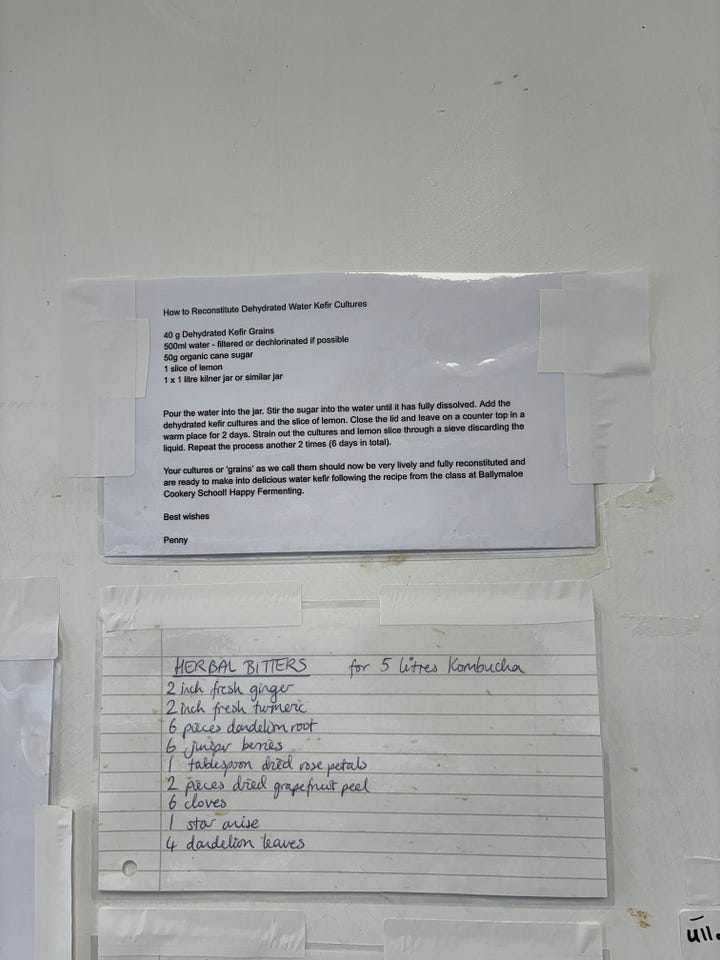 How to Reconstitute Dehydrated Water Kefir Cultures
40 g Dehydrated Kefir Grains
500ml water - filtered or dechlorinated if possible
50g organic cane sugar
1 slice of lemon
1 x 1 litre kilner jar or similar jar
Pour the water into the jar. Stir the sugar into the water until it has fully dissolved. Add the
dehydrated kefir cultures and the slice of lemon. Close the lid and leave on a counter top in a
warm place for 2 days. Strain out the cultures and lemon slice through a sieve discarding the
liquid. Repeat the process another 2 times (6 days in total).
Your cultures or 'grains' as we call them should now be very lively and fully reconstituted and
are ready to make into delicious water kefir following the recipe from the class at Ballymaloe
Cookery School! Happy Fermenting.
Best wishes
Penny
HERBAL BITTERS for 5 litres Kombucha
2 inch fresh ginger
2 inch fresh turmeric
6 pieces dandelion root
6 juniper berries
1 tablespoon dried rose petals
2 pieces dried grapefruit peel
6 cloves
1 star anise
4 dandelion leaves